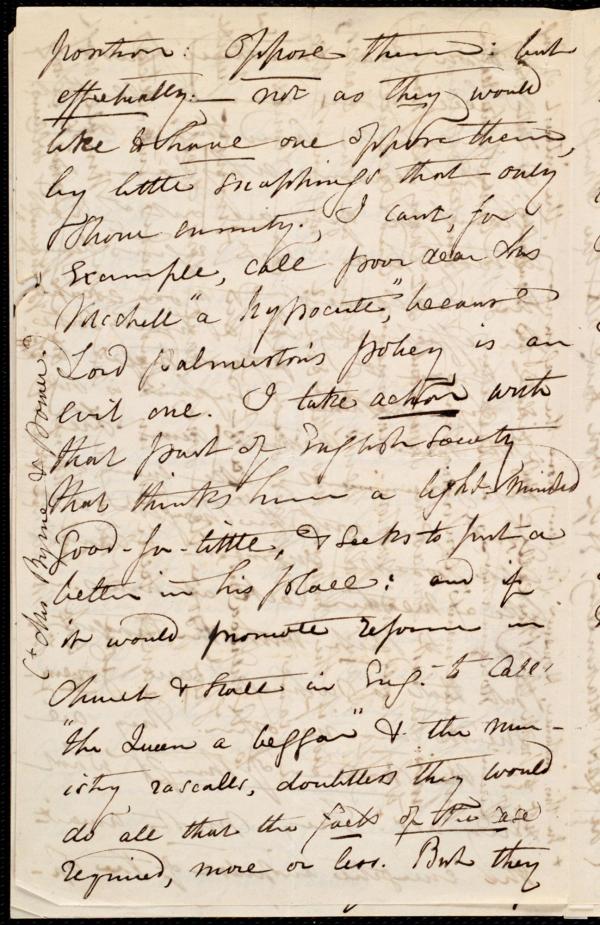 position: Oppose them: but
effectually:— not as they would
like to have one oppose them,
by little snappings that only
show enmity. I can't, for
example, call poor dear Mrs
Mitchell "a hypocrite", because
Lord Palmerston's policy is an
evil one. I take action with
that part of English Society
that thinks him a light-minded
good-for-little, & seeks to put a
better in his place: and if
it would promote reform in
Church & State in Eng. to call
"the Queen a beggar" & the min-
istry rascalls, doubtless they would
do all that the facts of the case
required, more or less. But they
(+ Mrs Byrne &